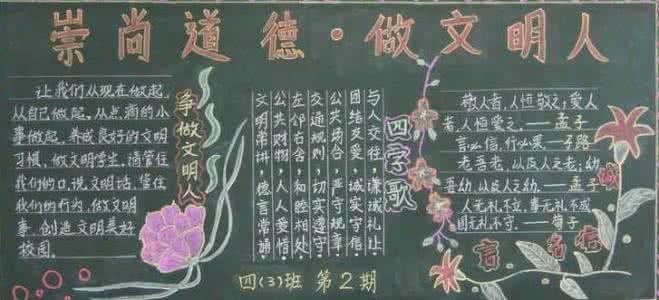 崇尚道德·做文明人
让我们从现在做起,
从自己做起,从点滴的小
事做起,养成良好的文明
习惯,做文明学生,请管住
我们的口,说文明话,管住
我们的行为,做文明
事,创造文明美好
校园。
争做文明人
四字歌
与人交往,谦诚礼让。
团结友爱,诚实守信。
公共场合,严守规章。
交通规则,切实遵守。
左邻右舍,和睦相处。
公共财物,人人爱惜。
文明常讲,德言常诵。
敬人者,人恒敬之;爱人
者,人恒爱之。——孟子
言必信,行必果。——子路
老吾老,以及人之老;幼
吾幼,以及人之幼。——孟子
人无礼不立,事无礼不成,
国无礼不守。——荀子
四(3)班 第2期